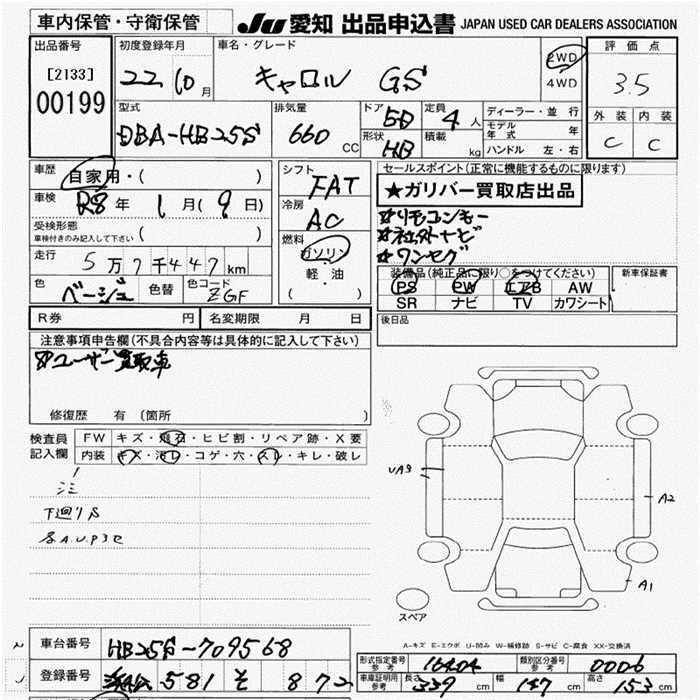 車内保管・守衛保管
JU 愛知 出品申込書 JAPAN USED CAR DEALERS ASSOCIATION
出品番号
[2133]
00199
初度登録年月
22 10月
車名・グレード
キャロル GS
2WD
4WD
評価点
3.5
外装 内装
C C
型式
DBA-HB25S
排気量
660 CC
ドア 5D
形状 HB
定員 4人
積載 kg
ディーラー・並行
モデル年式 年
ハンドル 左・右
車歴
自家用・( )
車検
R8年 1月(9日)
受検形態
車検付きのみ記入して下さい ( )
走行
5万7千447km
色 ベージュ 色替 色コード ZGF
シフト
FAT
冷房
AC
燃料
ガソリン
軽・油
( )
セールスポイント(正常に機能するものに限ります)
★ガリバー買取店出品
☆リモコンキー
☆ワンセグ
装備品(純正品に限り○をつけてください)
PS PW エアB AW
SR ナビ TV カワシート
新車保証書
後日品
R券 円 名変期限 月 日
注意事項申告欄(不具合内容等は具体的に記入して下さい)
☆ユーザー買取車
修復歴 有 (箇所 )
検査員記入欄
FW キズ・飛石・ヒビ割・リペア跡・X要
内装 キズ・汚レ・コゲ・穴・スレ・キレ・破レ
下廻りS
各A.U.P3セ
UA3
A2
A1
スペア
A-キズ E-エクボ U-凹み W-補修跡 S-サビ C-腐食 XX-交換済
車台番号 HB25S-709568
登録番号 581 そ 872
形式指定番号 参考 16404 類別区分番号 参考 0006
車庫証明用 参考 長さ 339 cm 幅 147 cm 高さ 153 cm